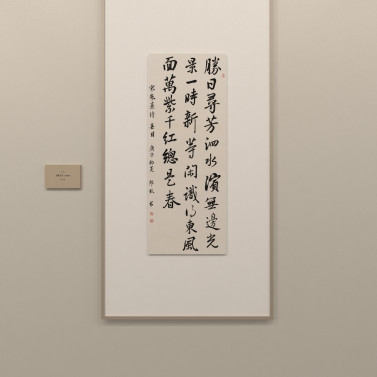 勝日尋芳泗水濱無邊光
景一時新等閑識得東風
面萬紫千紅總是春
熹詩 春日